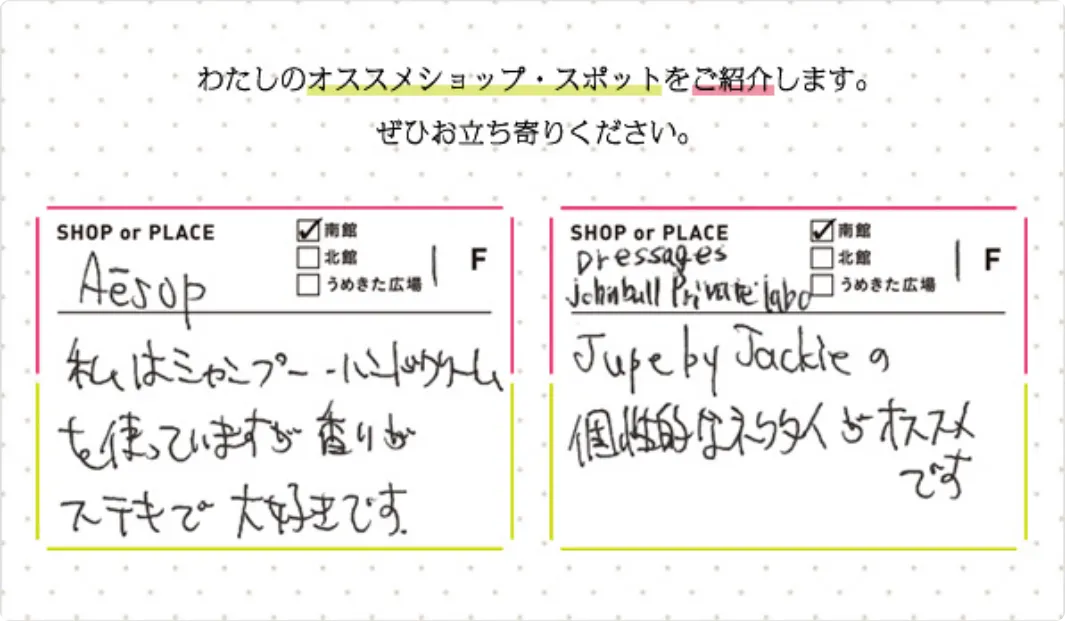 わたしのオススメショップ・スポットをご紹介します。
ぜひお立ち寄りください。
SHOP or PLACE
Aēsop
南館
北館
うめきた広場
1 F
私はシャンプー・ハンドクリーム
を使っていますが香りが
ステキで大好きです.
SHOP or PLACE
Dressages
johnbull Private labo
南館
北館
うめきた広場
1 F
Jupe by Jackieの
個性的なネクタイがオススメ
です